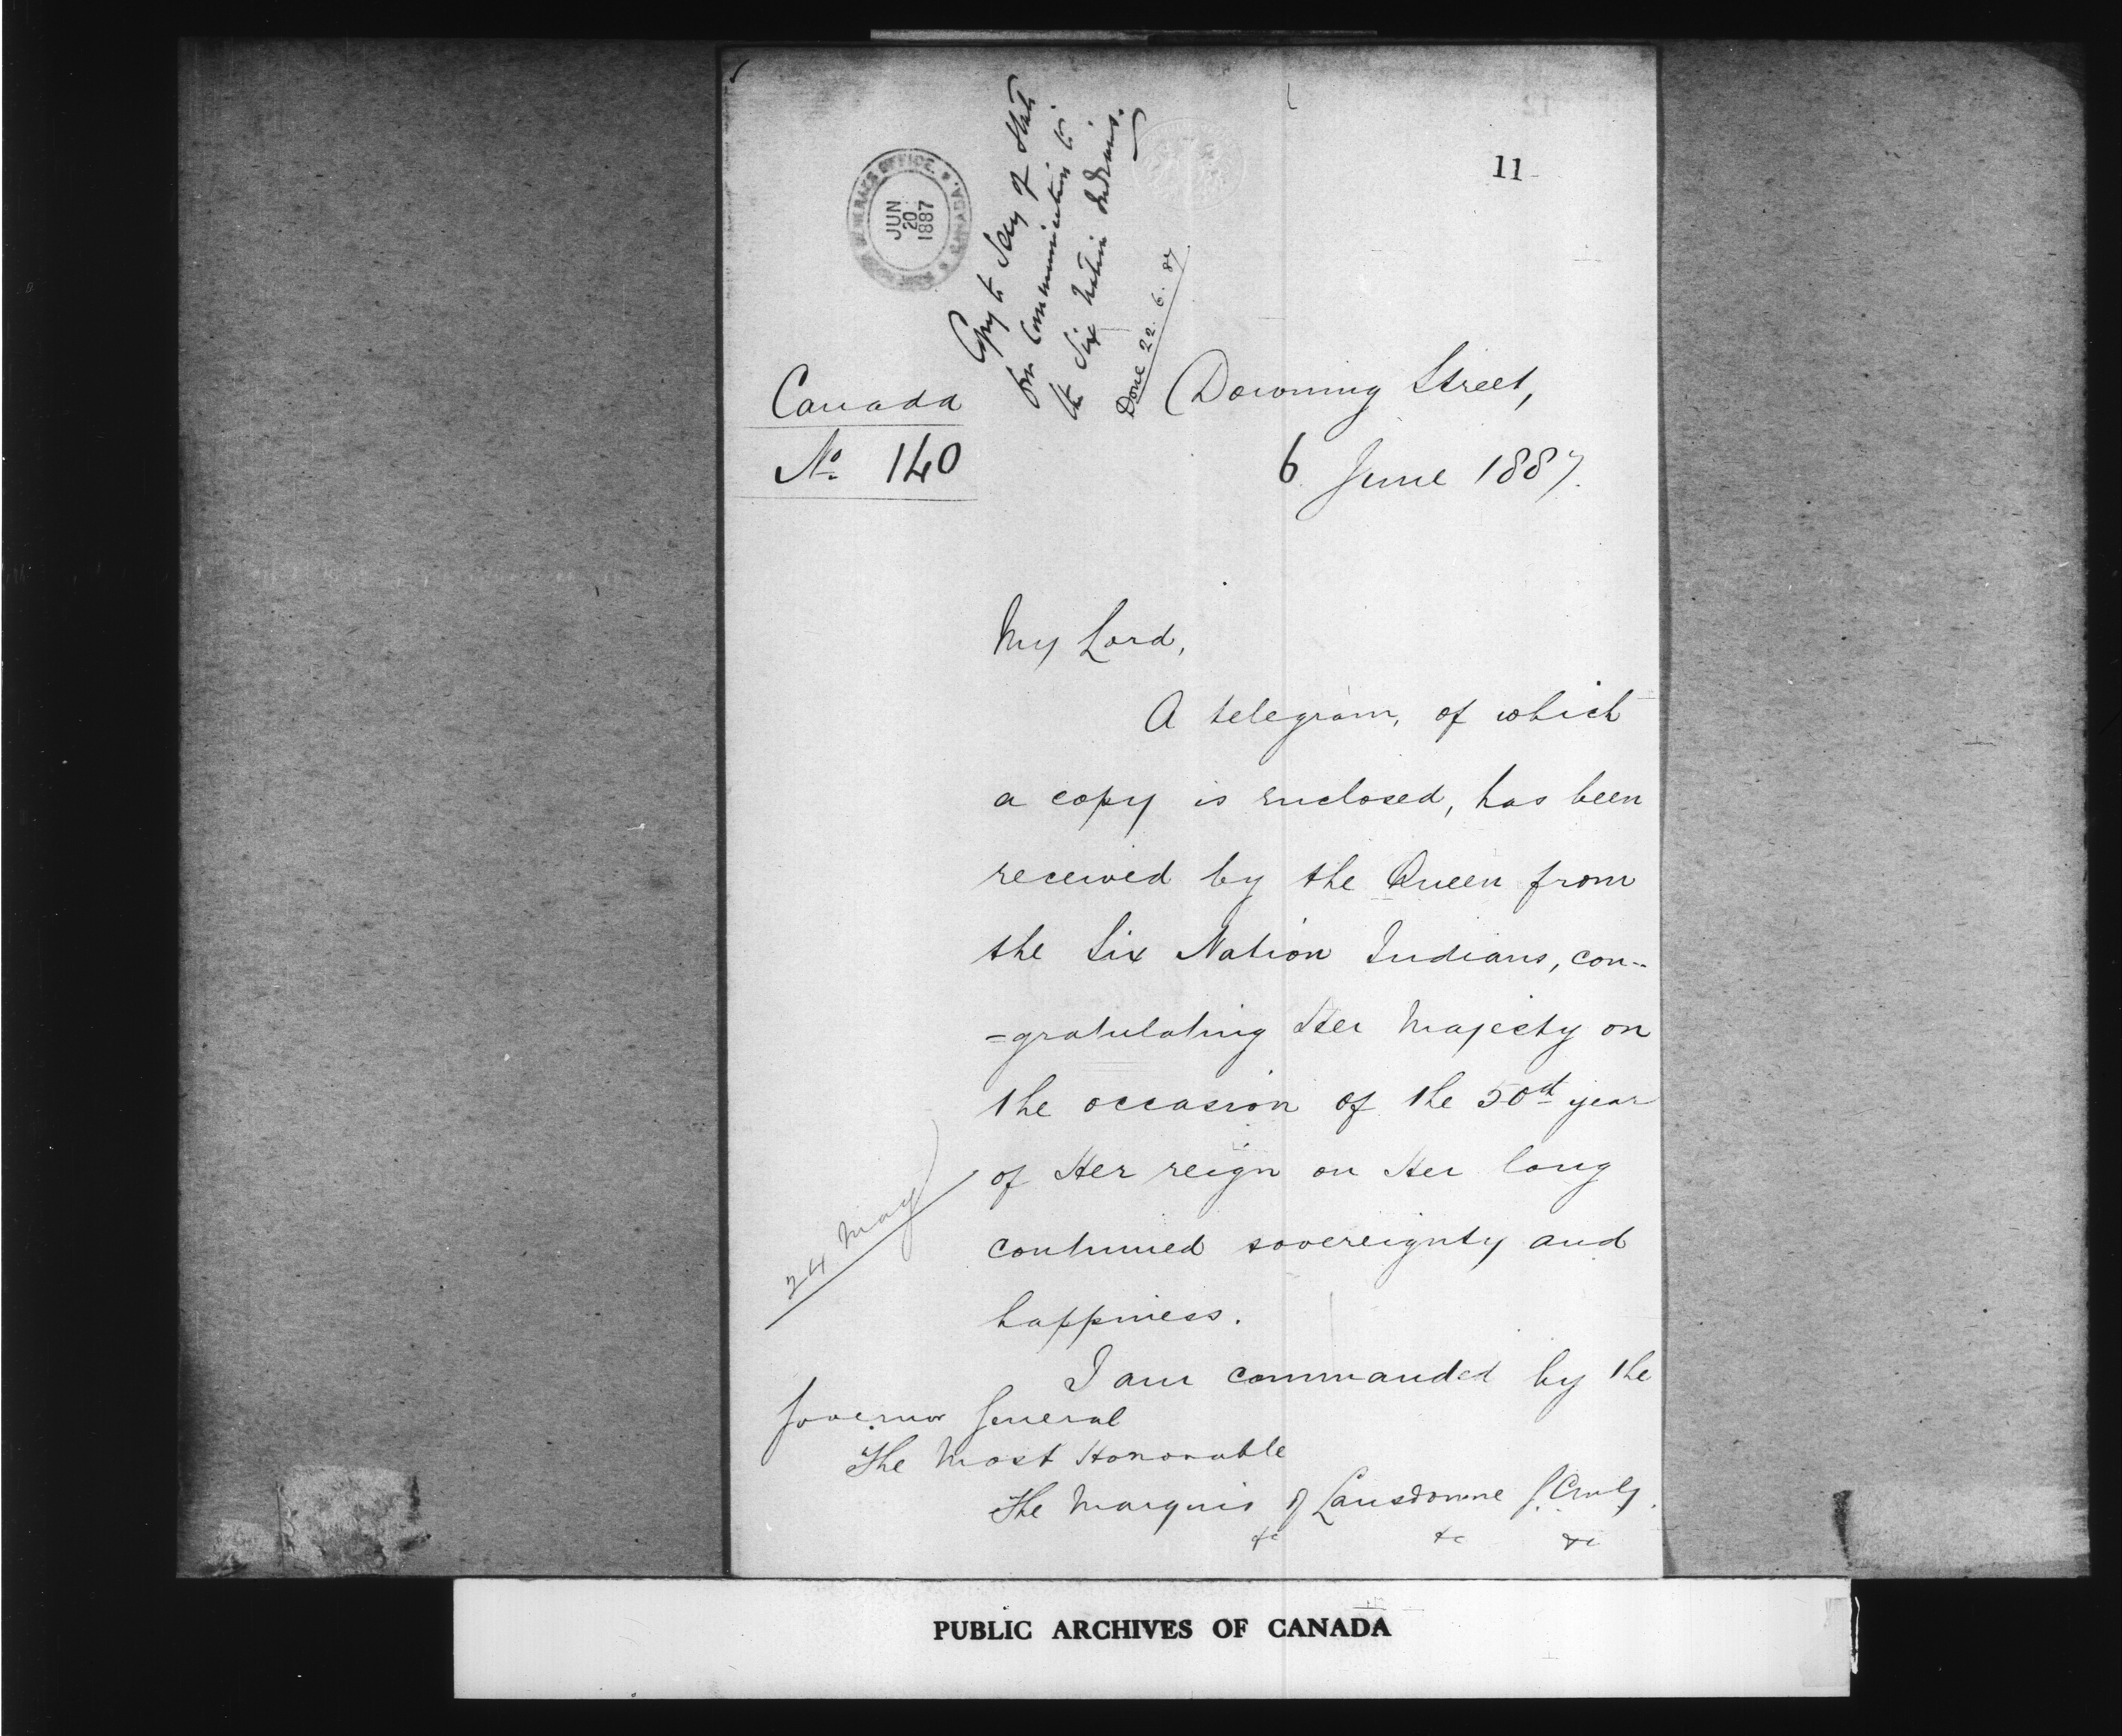 11
GOVERNOR GENERAL'S OFFICE. * CANADA. *
JUN
20
1887
Copy to Secy of State
for communication to
the Six Nation Indians.
Done 22.6.87
Canada
No. 140
Downing Street,
6 June 1887.
My Lord,
A telegram, of which
a copy is enclosed, has been
received by the Queen from
the Six Nation Indians, con-
=gratulating Her Majesty on
the occasion of the 50th year
of Her reign on Her long
continued sovereignty and
happiness.
24 May
I am commanded by the
Governor General
The Most Honorable
The Marquis of Lansdowne G.C.M.G.
&c &c &c
PUBLIC ARCHIVES OF CANADA